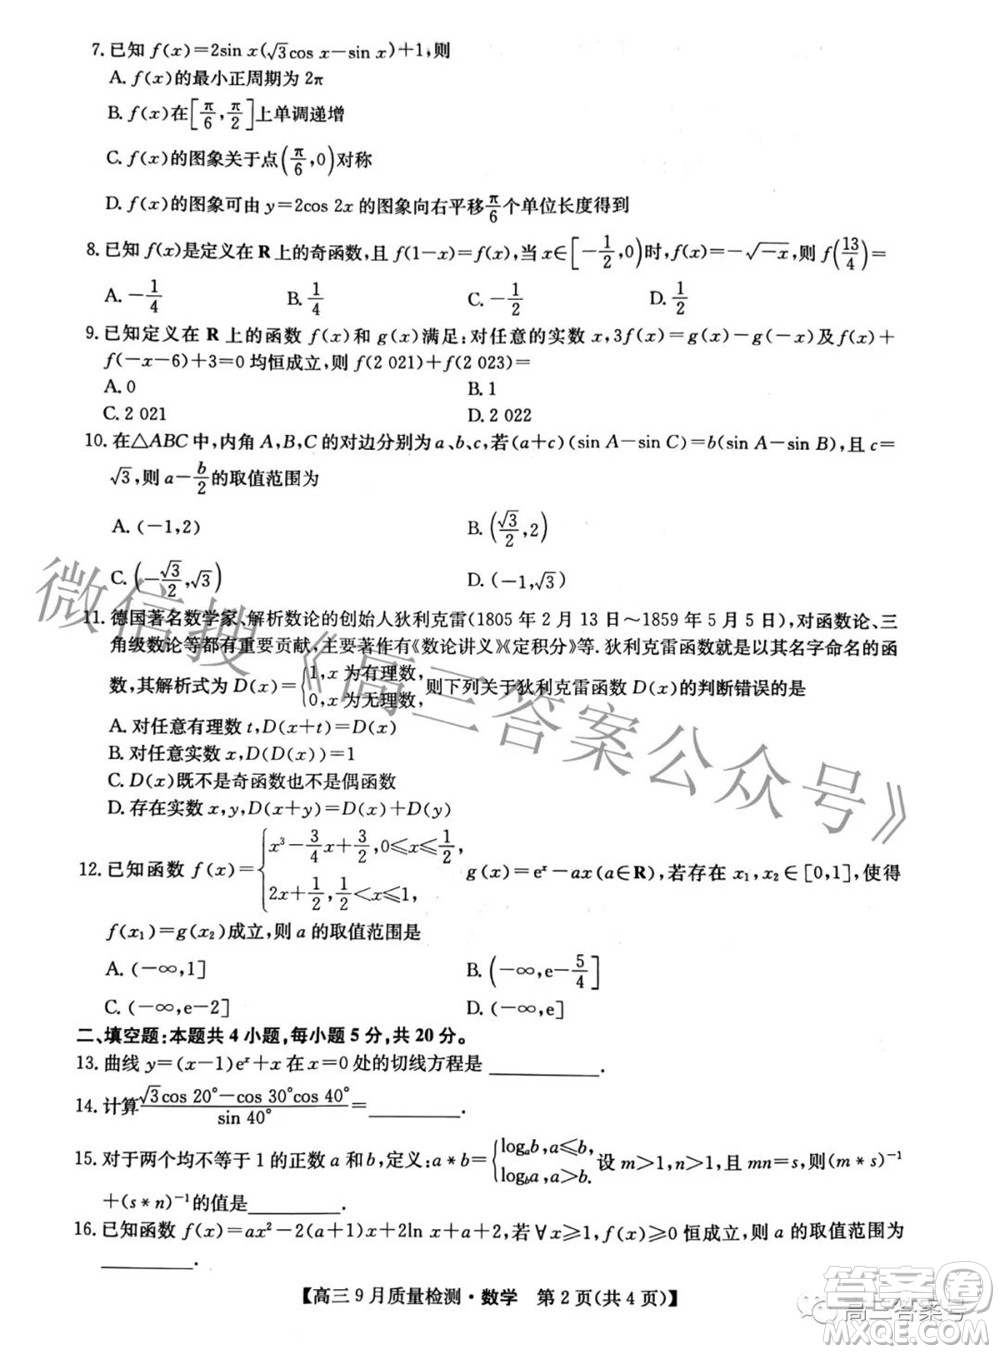 7. 已知 f(x)=2sin x(√3cos x−sin x)+1,则
A. f(x)的最小正周期为 2π
B. f(x)在[π/6,π/2]上单调递增
C. f(x)的图象关于点(π/6,0)对称
D. f(x)的图象可由 y=2cos 2x 的图象向右平移π/6个单位长度得到
8. 已知 f(x)是定义在 R 上的奇函数,且 f(1−x)=f(x),当 x∈[−1/2,0)时,f(x)=−√−x,则 f(13/4)=
A. −1/4 B. 1/4 C. −1/2 D. 1/2
9. 已知定义在 R 上的函数 f(x)和 g(x)满足:对任意的实数 x,3f(x)=g(x)−g(−x)及f(x)+
f(−x−6)+3=0 均恒成立,则 f(2 021)+f(2 023)=
A. 0 B. 1
C. 2 021 D. 2 022
10. 在△ABC 中,内角 A,B,C 的对边分别为 a、b、c,若(a+c)(sin A−sin C)=b(sin A−sin B),且 c=
√3,则 a−b/2的取值范围为
A. (−1,2) B. (√3/2,2)
C. (−√3/2,√3) D. (−1,√3)
11. 德国著名数学家、解析数论的创始人狄利克雷(1805 年 2 月 13 日~1859 年 5 月 5 日),对函数论、三
角级数论等都有重要贡献,主要著作有《数论讲义》《定积分》等. 狄利克雷函数就是以其名字命名的函
数,其解析式为 D(x)={1,x 为有理数, 0,x 为无理数, 则下列关于狄利克雷函数 D(x)的判断错误的是
A. 对任意有理数 t,D(x+t)=D(x)
B. 对任意实数 x,D(D(x))=1
C. D(x)既不是奇函数也不是偶函数
D. 存在实数 x,y,D(x+y)=D(x)+D(y)
12. 已知函数 f(x)={x³−3/4x+1/2,0≤x≤1/2, 2x+1/2,1/2<x≤1, g(x)=eˣ−ax(a∈R),若存在 x₁,x₂∈[0,1],使得
f(x₁)=g(x₂)成立,则 a 的取值范围是
A. (−∞,1] B. (−∞,e−5/4]
C. (−∞,e−2] D. (−∞,e]
二、填空题:本题共 4 小题,每小题 5 分,共 20 分。
13. 曲线 y=(x−1)eˣ+x 在 x=0 处的切线方程是 ________.
14. 计算(√3cos 20°−cos 30°cos 40°)/sin 40°=________.
15. 对于两个均不等于 1 的正数 a 和 b,定义:a*b={logₐb,a≤b, log_b a,a>b. 设 m>1,n>1,且 mn=s,则(m*s)⁻¹
+(s*n)⁻¹的值是________.
16. 已知函数 f(x)=ax²−2(a+1)x+2ln x+a+2,若∀x≥1,f(x)≥0 恒成立,则 a 的取值范围为
________.
【高三 9 月质量检测·数学 第 2 页(共 4 页)】
微信搜《高三答案公众号》
高三答案号
答案圈
MXQE.COM